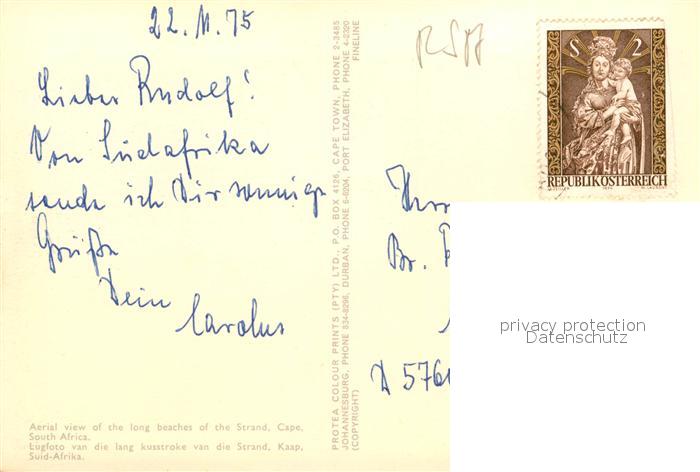 22. 11. 75
Lieber Rudolf!
Von Südafrika
sende ich Dir sonnige
Grüße
Dein
Carolus
Aerial view of the long beaches of the Strand, Cape,
South Africa.
Lugfoto van die lang kusstroke van die Strand, Kaap,
Suid-Afrika.
PROTEA COLOUR PRINTS (PTY) LTD., P.O. BOX 4126, CAPE TOWN, PHONE 2-3485
JOHANNESBURG, PHONE 834-8296, DURBAN, PHONE 6-0204, PORT ELIZABETH, PHONE 4-2320
(COPYRIGHT) FINELINE
RSA
S 2
REPUBLIK ÖSTERREICH
Herrn
Br.
D 576
privacy protection
Datenschutz